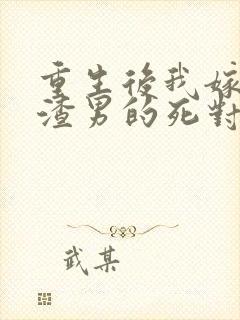 重生後我嫁
渣男的死對
武某